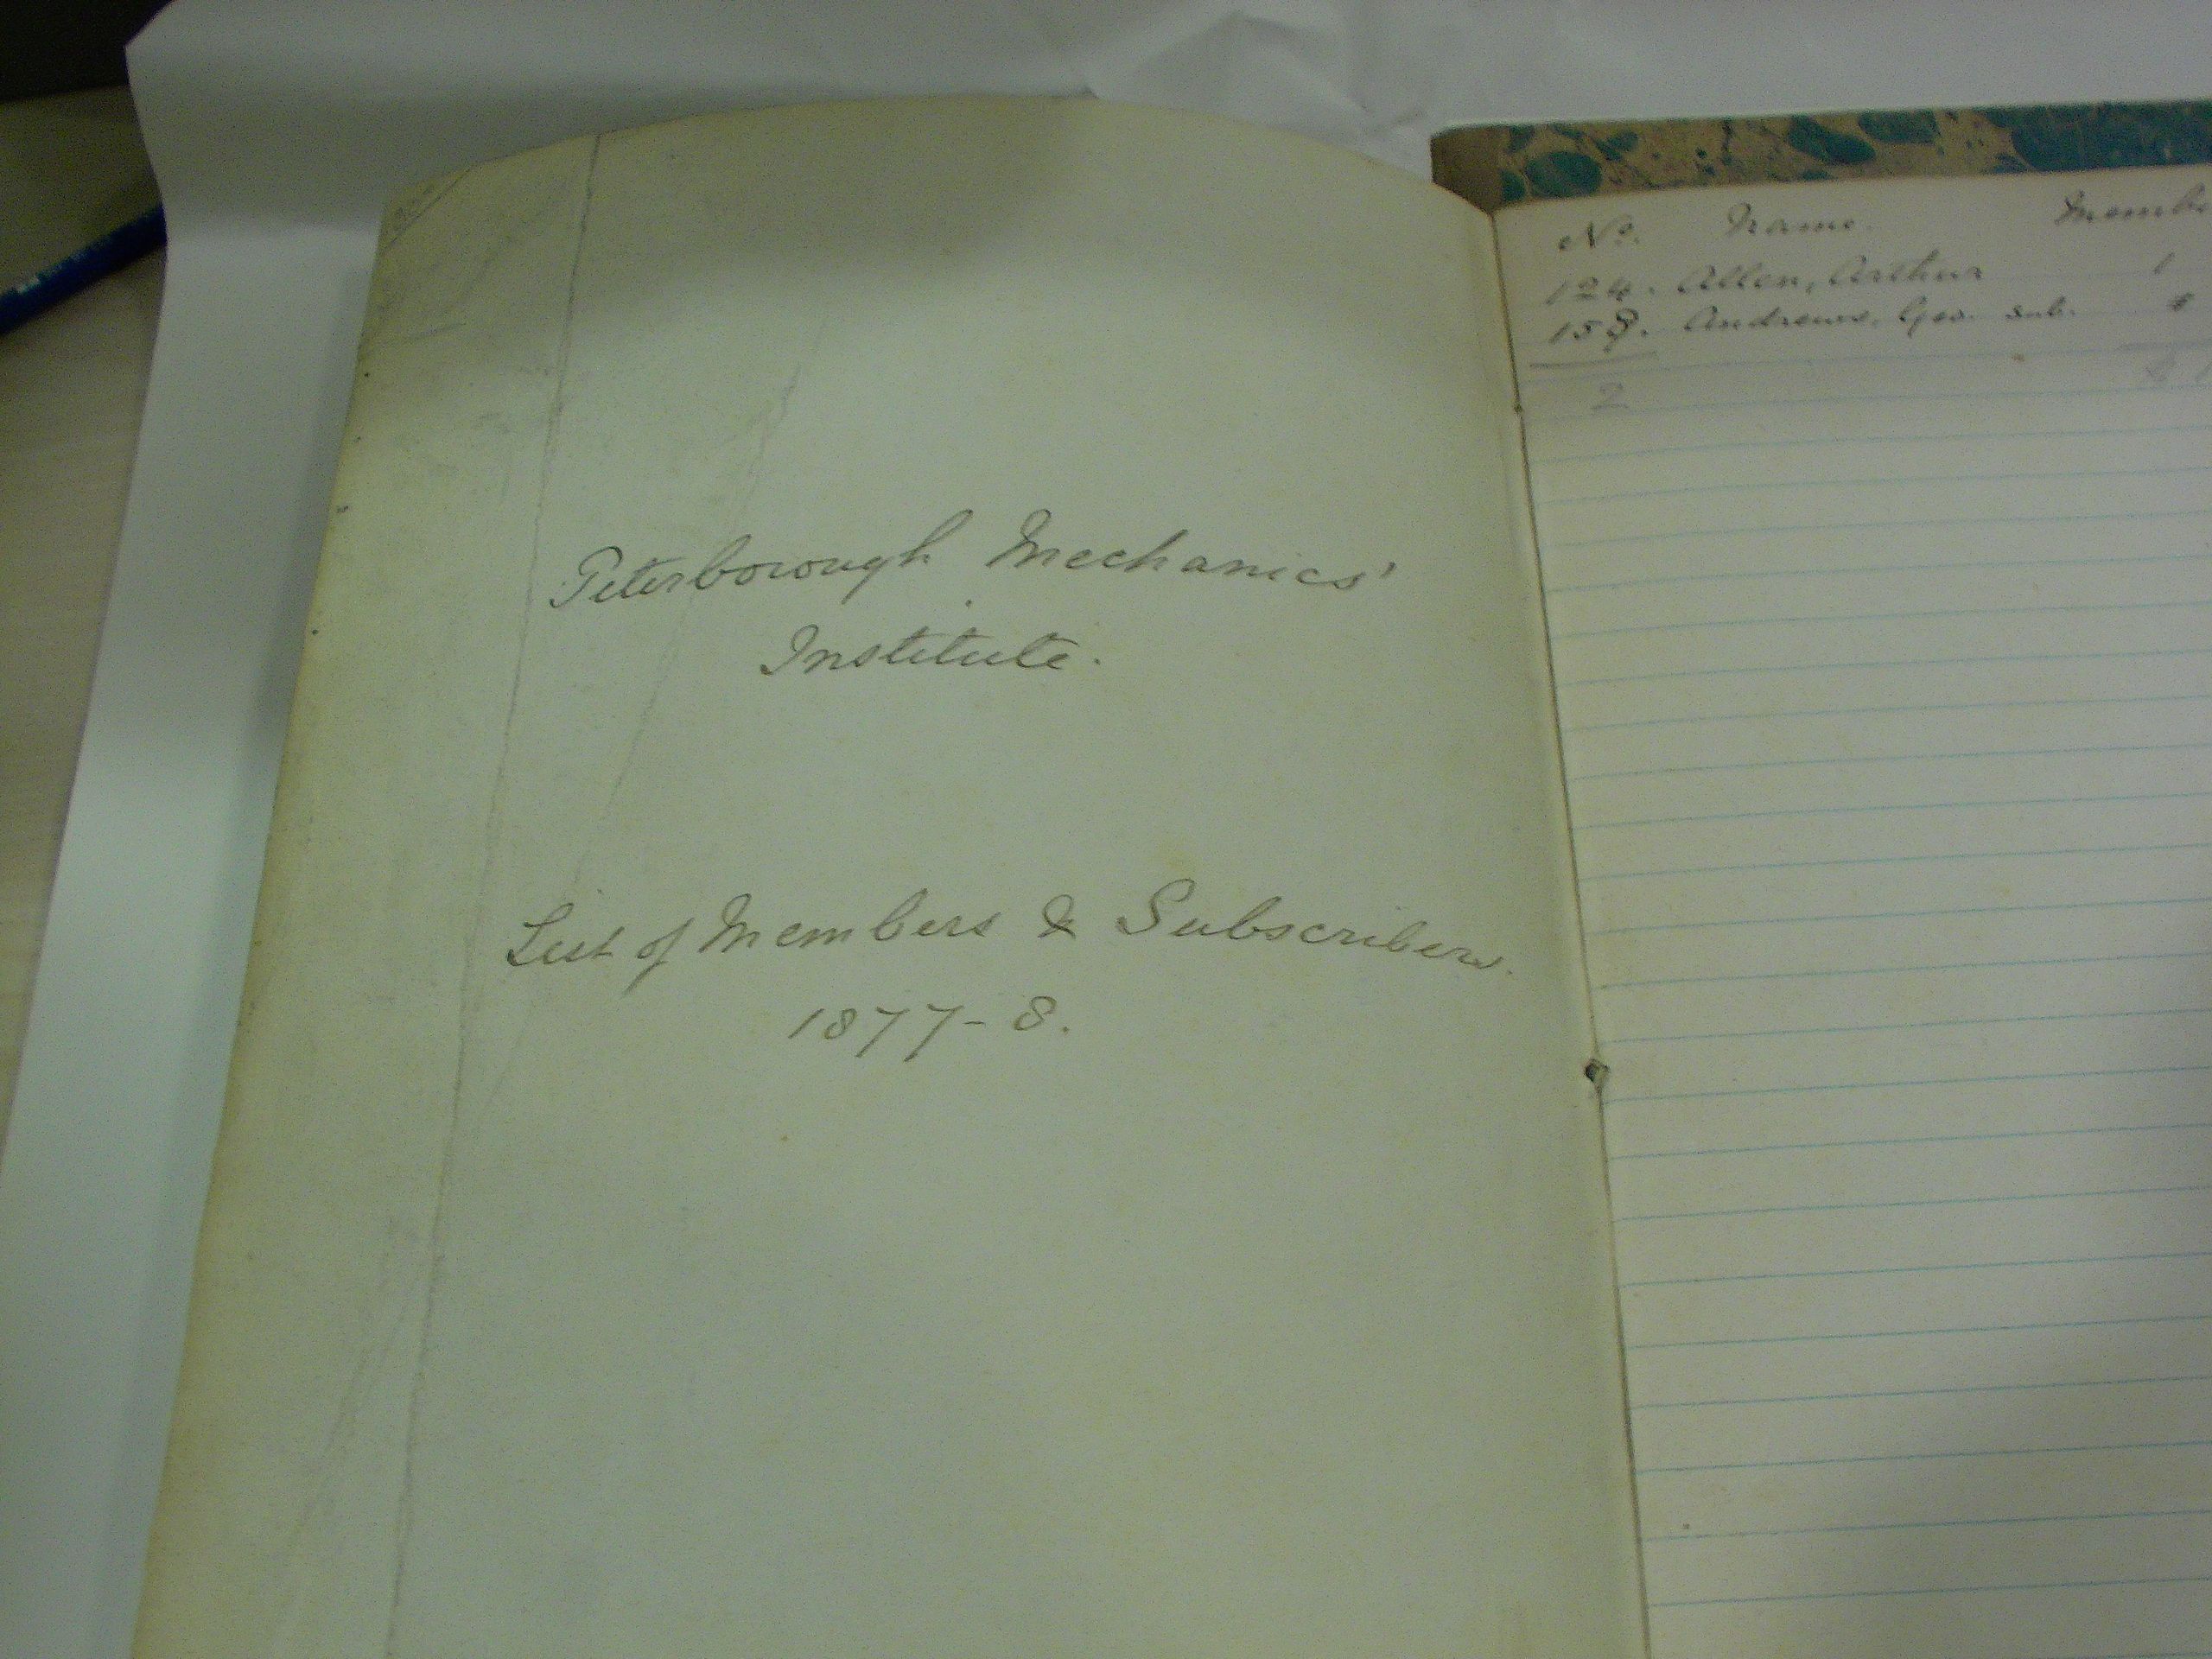 Peterborough Mechanics'
Institute.
List of Members & Subscribers.
1877-8.
No. Name. Membe
124. Allen, Arthur 1
158. Andrews, Geo. sub.
2